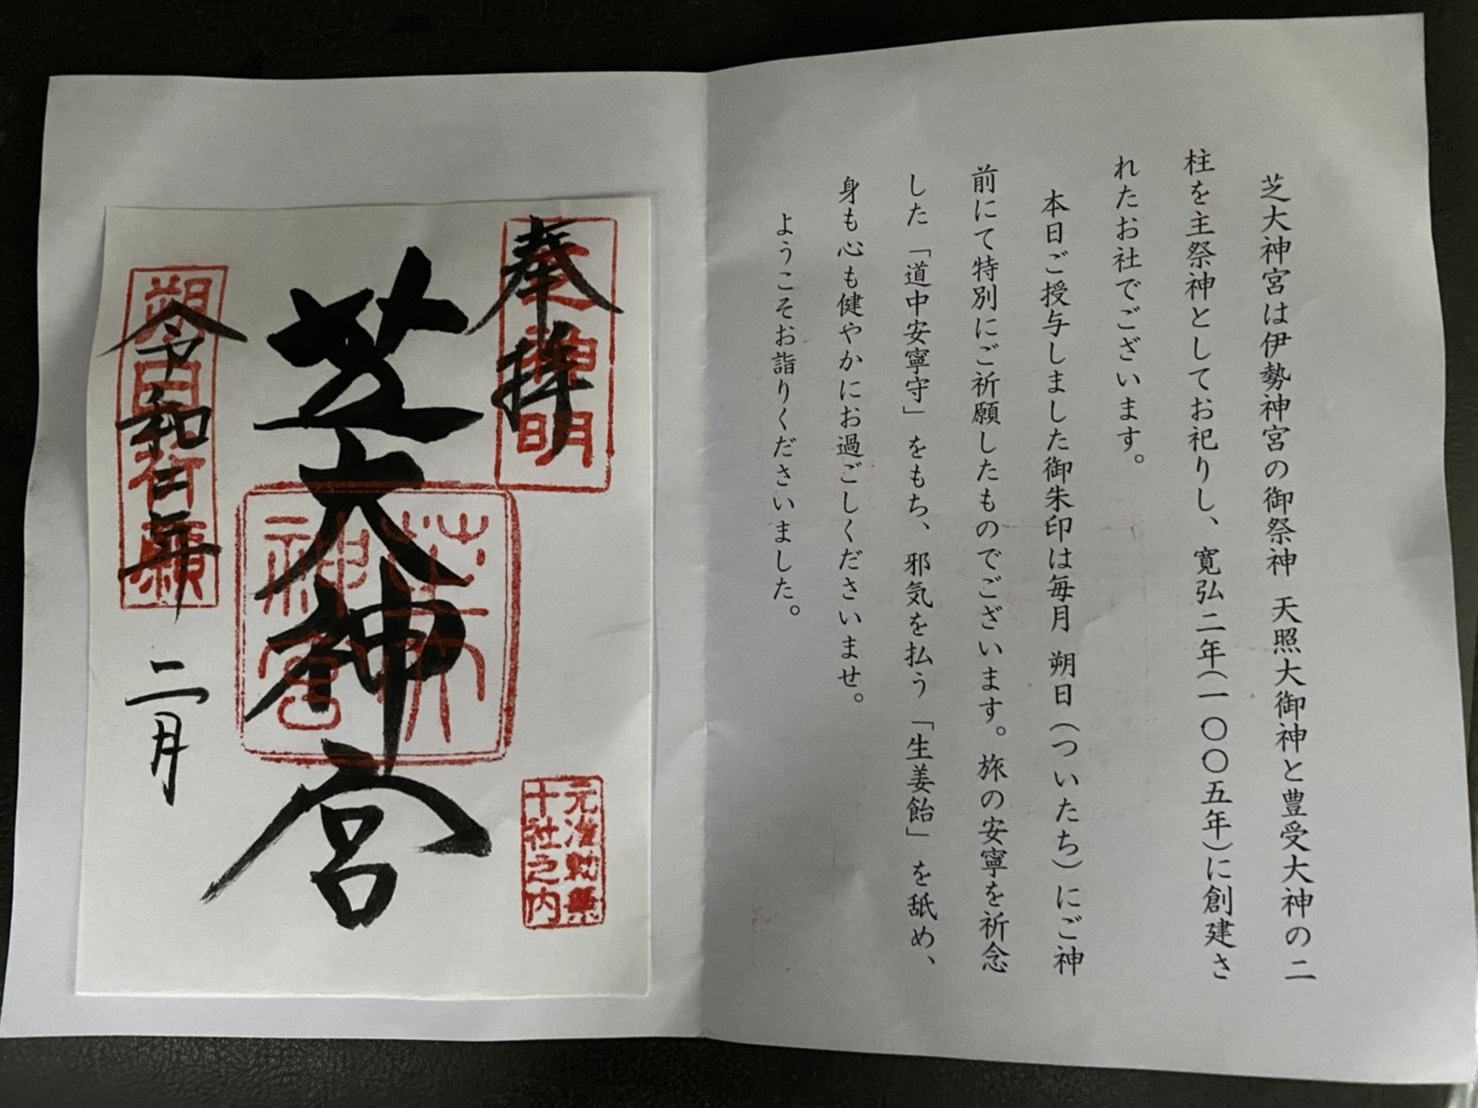 芝大神宮は伊勢神宮の御祭神 天照大御神と豊受大神の二
柱を主祭神としてお祀りし、寛弘二年(一〇〇五年)に創建さ
れたお社でございます。
本日ご授与しました御朱印は毎月 朔日(ついたち)にご神
前にて特別にご祈願したものでございます。旅の安寧を祈念
した「道中安寧守」をもち、邪気を払う「生姜飴」を舐め、
身も心も健やかにお過ごしくださいませ。
ようこそお詣りくださいました。
奉拝
芝大神宮
芝大
神宮
元准勅祭
十社之内
朔日祈願
令和二年 二月